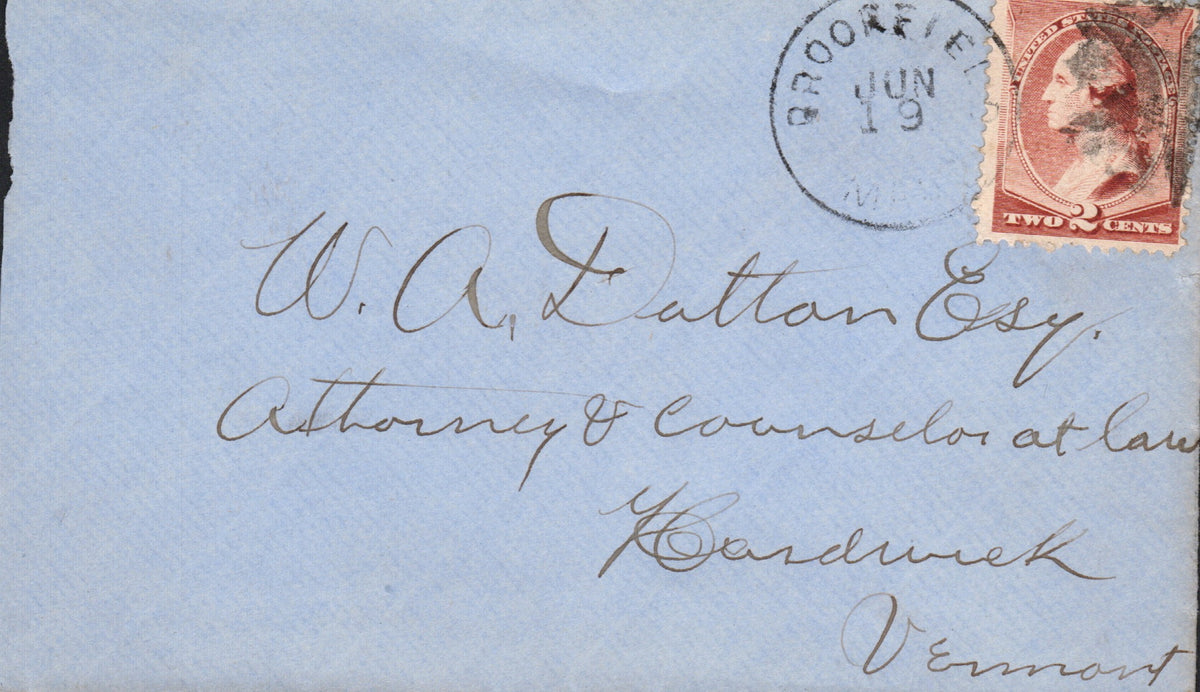 BROOKFIE
JUN
19
UNITED STATES POSTAGE
TWO 2 CENTS
W. A. Dutton Esq.
Attorney & Counselor at law
Hardwick
Vermont